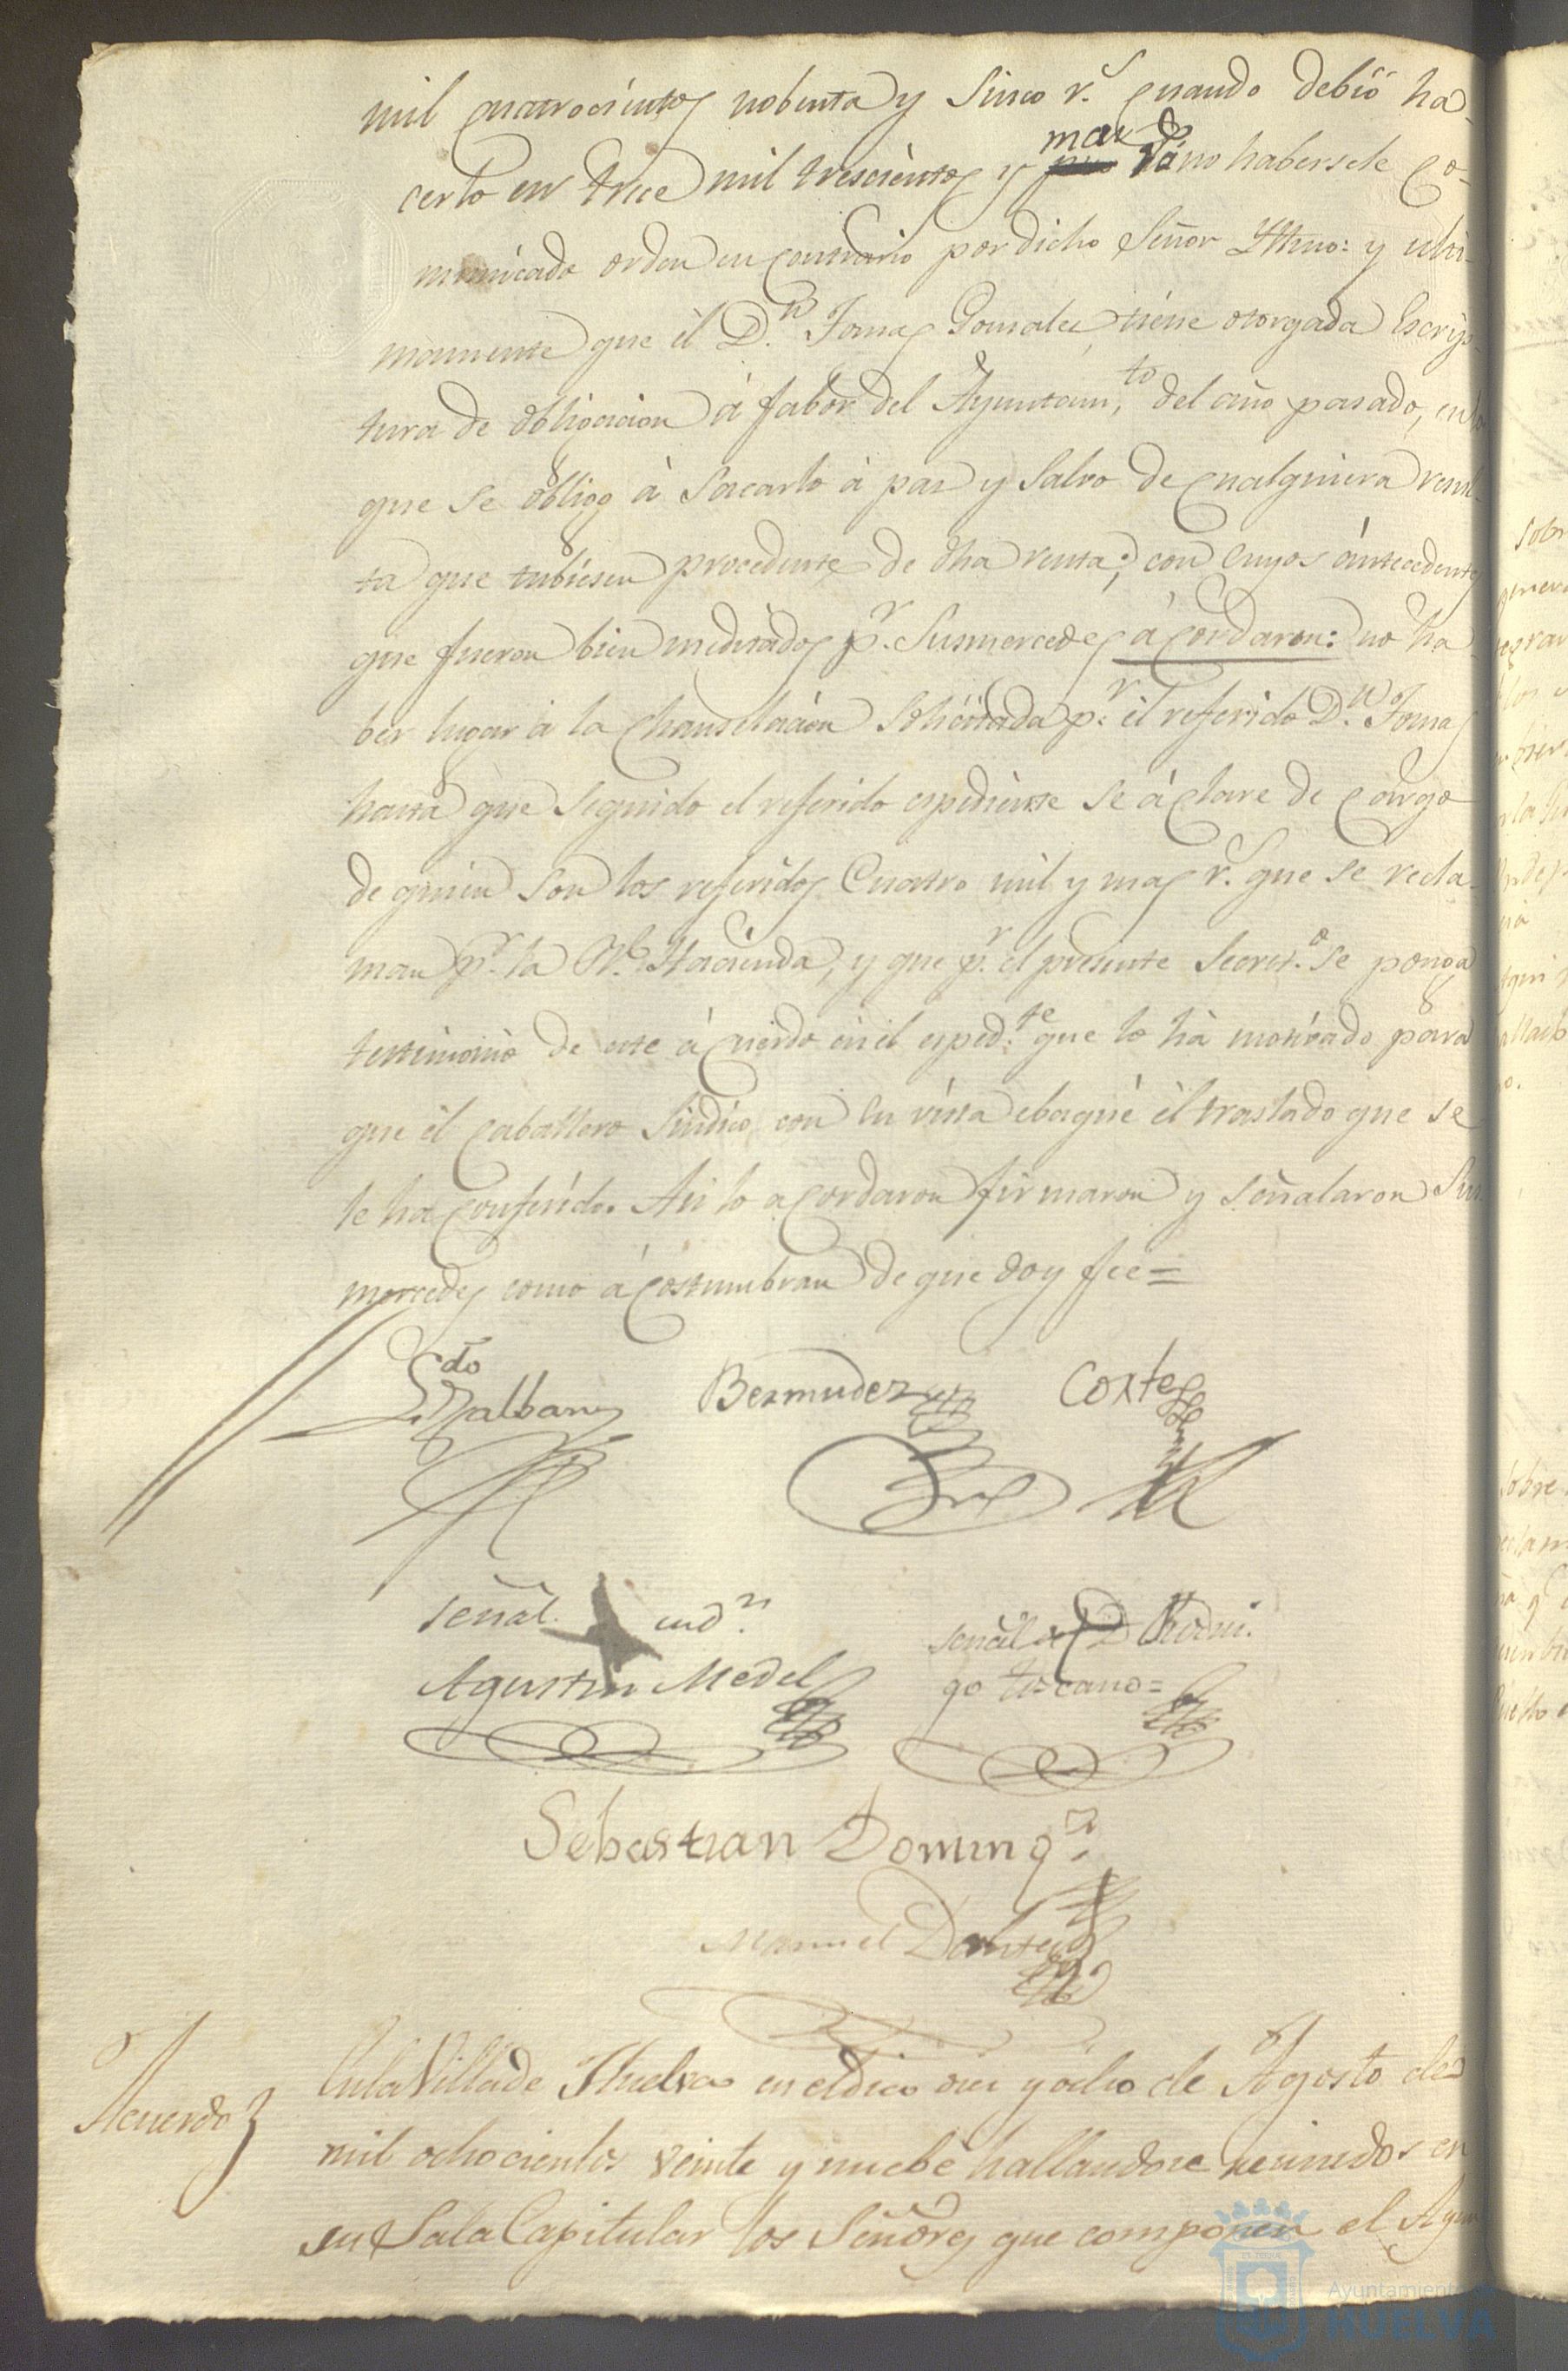 mil quatrocientos nobenta y Sinco r.s quando debió ha-
cerlo en trece mil trescientos y mas r.s no habersele co-
municado orden en contrario por dicho Señor Yttmo: y ulti-
mamente que él D.n Tomas Gonzalez tiene otorgada Escrip-
tura de obligacion á fabor del Ayuntam.to del año pasado, en la
que se óbligo á Sacarlo á paz y Salvo de qualquiera resul-
ta que tubiesen procedente de dha renta; con cuyos ántecedentes
que fueron bien meditados p.r Susmercedes ácordaron: no ha-
ber lugar á la Chanselacion Solicitada p.r él referido D.n Tomas
hasta que seguido el referido espediente se áclare de cargo
de quien son los referidos Cuatro mil y mas r.s que se recla-
man p.r la R.l Hacienda, y que p.r el presente Secret.o se ponga
testimonio de este ácuerdo én él esped.te que lo há motivado para
que él Caballero Sindico con su vista ebaqué él traslado que se
le ha conferido. Asi lo acordaron firmaron y señalaron Sus
mercedes como ácostumbran de que doy fee=
Lcdo
Bermudez Cortes
señal + en d.n
Agustin Medel
señal de D Rodri-
go toscano=
Sebastian Doming.z
Manuel
Acuerdo
En la Villa de Huelva en el dia dies y ocho de Agosto de
mil ochocientos veinte y nuebe hallandose reunidos en
su Sala Capitular los Señores que componen el Ayun
Sobre
Ayuntamiento
HUELVA